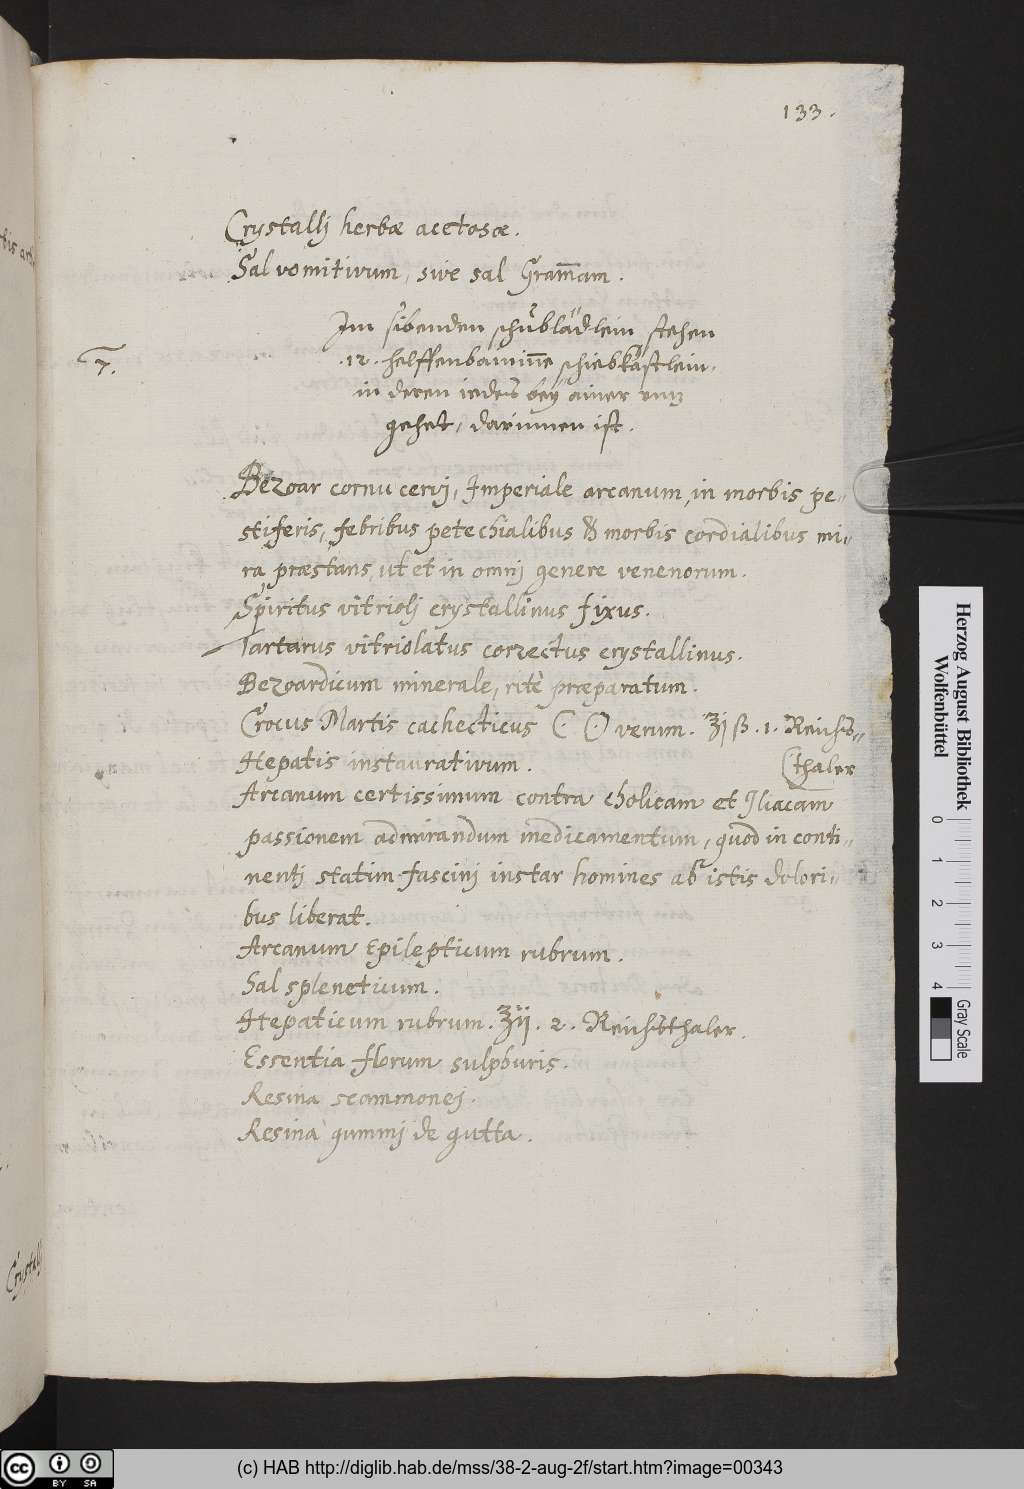 133.
Crystallj herbæ acetosæ.
Sal vomitivum, sive sal Gram̄am.
Im sibenden schubladlein stehen
7.
.12. helffenbainin̄e schiebkästlein,
in deren iedes bey ainer untz
gehet, darinnen ist.
Bezoar cornu cervj, Imperiale arcanum, in morbis pe-
stiferis, febribus petechialibus & morbis cordialibus mi-
ra præstans, ut et in omnj genere venenorum.
Spiritus vitriolj crystallinus fixus.
Tartarus vitriolatus correctus crystallinus.
Bezoardicum minerale, ritè præparatum.
Crocus Martis cachecticus C. C) verum. ʒj ß. 1. Reichs-
Hepatis instaurativum. (thaler
Arcanum certissimum contra cholicam et Iliacam
passionem admirandum medicamentum, quod in conti-
nentj statim fascinj instar homines ab istis dolori-
bus liberat.
Arcanum Epilepticum rubrum.
Sal spleneticum.
Hepaticum rubrum. ʒij. 2. Reichsthaler.
Essentia florum sulphuris.
Resina scammonej.
Resina gummj de gutta.
Crystallj
Herzog August Bibliothek
Wolfenbüttel
0 1 2 3 4
Gray Scale
cc BY SA
(c) HAB http://diglib.hab.de/mss/38-2-aug-2f/start.htm?image=00343